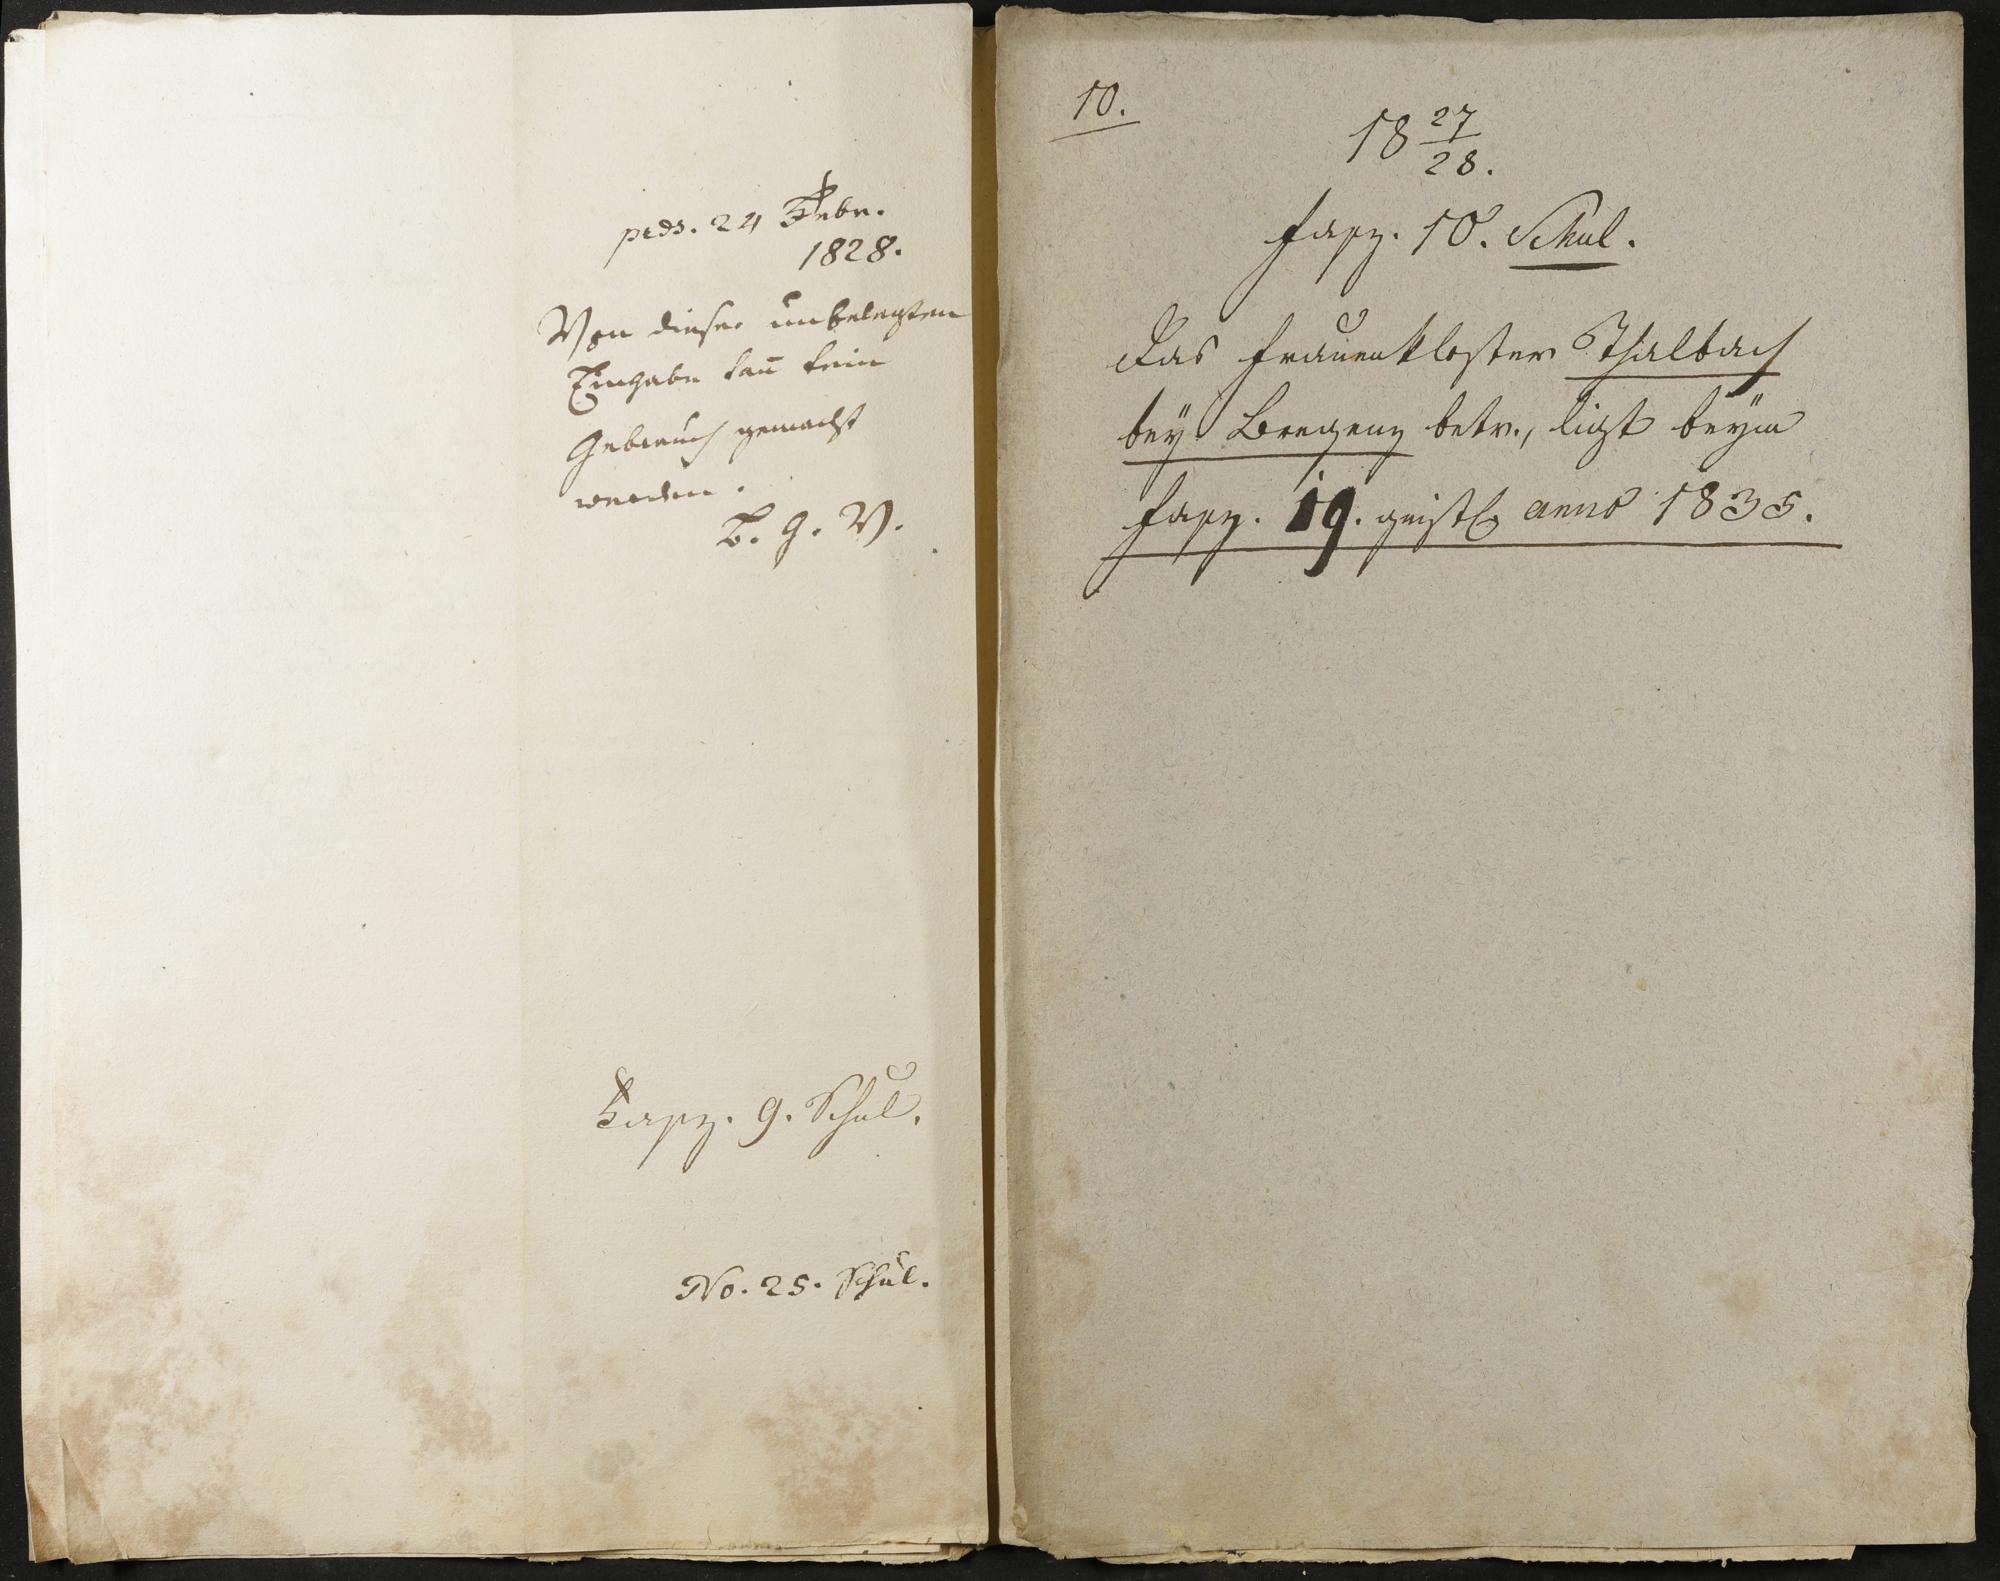 prds. 24 Febr.
1828.
Von dieser unbelegten
Eingabe kañ kein
Gebrauch gemacht
werden.
B. G. V.
Fasz. 9. Schul.
No. 25. Schul.
10.
18 27/28.
Fasz. 10. Schul.
Das Frauenkloster Thalbach
bey Bregenz betr., ligt beym
Fasz. 19. geistl. anno 1835.